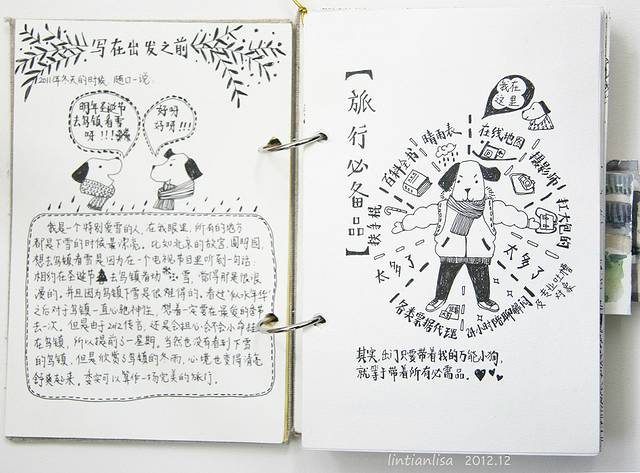 写在出发之前
2011年冬天的时候，随口一说.
明年圣诞节
去乌镇看雪
呀!!!
好呀
好呀!!!
我是一个特别爱雪的人，在我眼里，所有的地方
都是下雪的时候最漂亮，比如北京的故宫，圆明园.
想去乌镇看雪是因为在一个电视节目里听到一句话:
相约在圣诞节去乌镇看场雪，觉得那是很浪
漫的，并且因为乌镇下雪是很难得的。看过"似水年华"
之后对乌镇一直心驰神往，想着一定要在最爱的季节
去一次，但是由于2012传言，还是会担心会不会小命挂
在乌镇，所以提前了一星期，当然也没有看到下雪
的乌镇，但是欣赏了乌镇的冬雨，心境也变得清亮
舒爽起来，李安可以算作一场完美的旅行。
【旅行必备品】
我在
这里
晴雨表
在线地图
百科全书
摄影师
扶手棍
扛大包的
太多了
太多了
各类票据代理
24小时陪聊解闷
及专业吐槽
对象
其实，出门只要带着我的万能小狗，
就等于带着所有必需品.
lintianlisa 2012.12